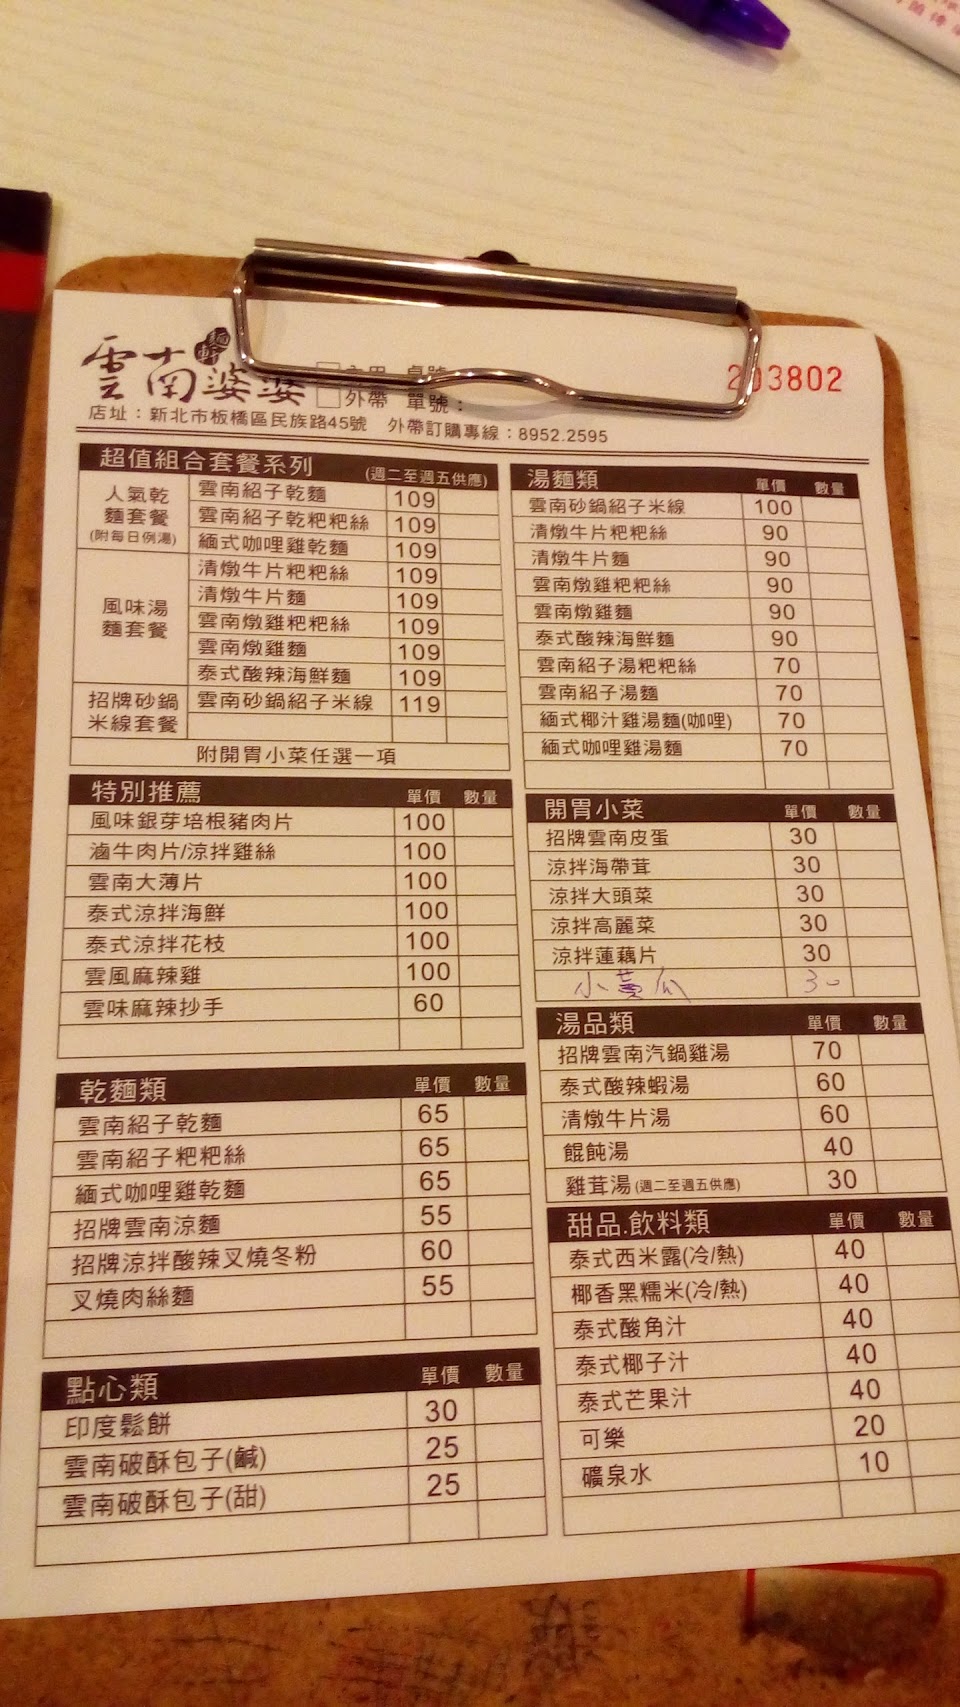 雲南婆婆
麵軒
內用 桌號
外帶 單號：
203802
店址：新北市板橋區民族路45號 外帶訂購專線：8952.2595
超值組合套餐系列 (週二至週五供應)
人氣乾麵套餐
(附每日例湯)
雲南紹子乾麵 109
雲南紹子乾粑粑絲 109
緬式咖哩雞乾麵 109
風味湯麵套餐
清燉牛片粑粑絲 109
清燉牛片麵 109
雲南燉雞粑粑絲 109
雲南燉雞麵 109
泰式酸辣海鮮麵 109
招牌砂鍋米線套餐
雲南砂鍋紹子米線 119
附開胃小菜任選一項
特別推薦 單價 數量
風味銀芽培根豬肉片 100
滷牛肉片/涼拌雞絲 100
雲南大薄片 100
泰式涼拌海鮮 100
泰式涼拌花枝 100
雲風麻辣雞 100
雲味麻辣抄手 60
乾麵類 單價 數量
雲南紹子乾麵 65
雲南紹子粑粑絲 65
緬式咖哩雞乾麵 65
招牌雲南涼麵 55
招牌涼拌酸辣叉燒冬粉 60
叉燒肉絲麵 55
點心類 單價 數量
印度鬆餅 30
雲南破酥包子(鹹) 25
雲南破酥包子(甜) 25
湯麵類 單價 數量
雲南砂鍋紹子米線 100
清燉牛片粑粑絲 90
清燉牛片麵 90
雲南燉雞粑粑絲 90
雲南燉雞麵 90
泰式酸辣海鮮麵 90
雲南紹子湯粑粑絲 70
雲南紹子湯麵 70
緬式椰汁雞湯麵(咖哩) 70
緬式咖哩雞湯麵 70
開胃小菜 單價 數量
招牌雲南皮蛋 30
涼拌海帶茸 30
涼拌大頭菜 30
涼拌高麗菜 30
涼拌蓮藕片 30
小黃瓜 30
湯品類 單價 數量
招牌雲南汽鍋雞湯 70
泰式酸辣蝦湯 60
清燉牛片湯 60
餛飩湯 40
雞茸湯(週二至週五供應) 30
甜品.飲料類 單價 數量
泰式西米露(冷/熱) 40
椰香黑糯米(冷/熱) 40
泰式酸角汁 40
泰式椰子汁 40
泰式芒果汁 40
可樂 20
礦泉水 10